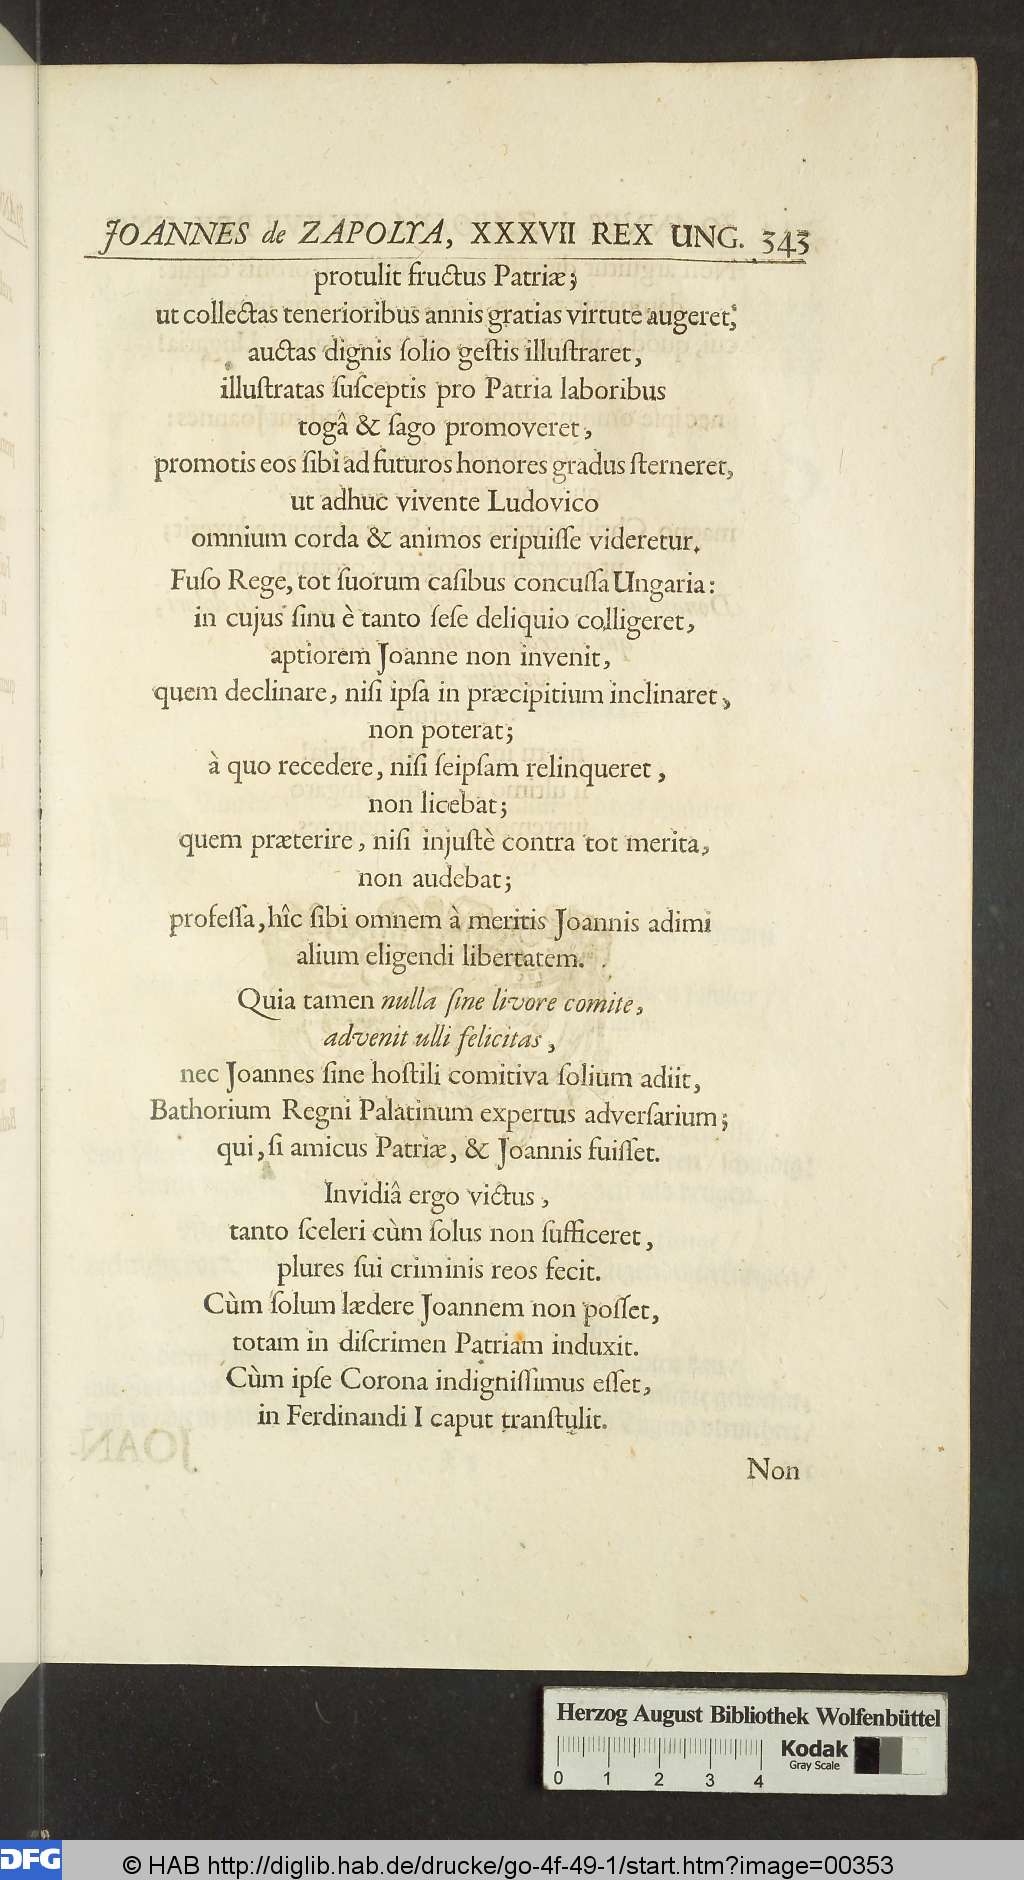 JOANNES de ZAPOLYA, XXXVII REX UNG. 343
protulit fructus Patriæ;
ut collectas tenerioribus annis gratias virtute augeret;
auctas dignis ſolio geſtis illuſtraret,
illuſtratas ſuſceptis pro Patria laboribus
togâ & ſago promoveret,
promotis eos ſibi ad futuros honores gradus ſterneret,
ut adhuc vivente Ludovico
omnium corda & animos eripuiſſe videretur.
Fuſo Rege, tot ſuorum caſibus concuſſa Ungaria:
in cujus ſinu è tanto ſeſe deliquio colligeret,
aptiorem Joanne non invenit,
quem declinare, niſi ipſa in præcipitium inclinaret,
non poterat;
à quo recedere, niſi ſeipſam relinqueret,
non licebat;
quem præterire, niſi injuſtè contra tot merita,
non audebat;
profeſſa, hîc ſibi omnem à meritis Joannis adimi
alium eligendi libertatem.
Quia tamen nulla ſine livore comite,
advenit ulli felicitas,
nec Joannes ſine hoſtili comitiva ſolium adiit,
Bathorium Regni Palatinum expertus adverſarium;
qui, ſi amicus Patriæ, & Joannis fuiſſet.
Invidiâ ergo victus,
tanto ſceleri cùm ſolus non ſufficeret,
plures ſui criminis reos fecit.
Cùm ſolum lædere Joannem non poſſet,
totam in diſcrimen Patriam induxit.
Cùm ipſe Corona indigniſſimus eſſet,
in Ferdinandi I caput tranſtulit.
Non
Herzog August Bibliothek Wolfenbüttel
Kodak
Gray Scale
0 1 2 3 4
DFG
© HAB http://diglib.hab.de/drucke/go-4f-49-1/start.htm?image=00353